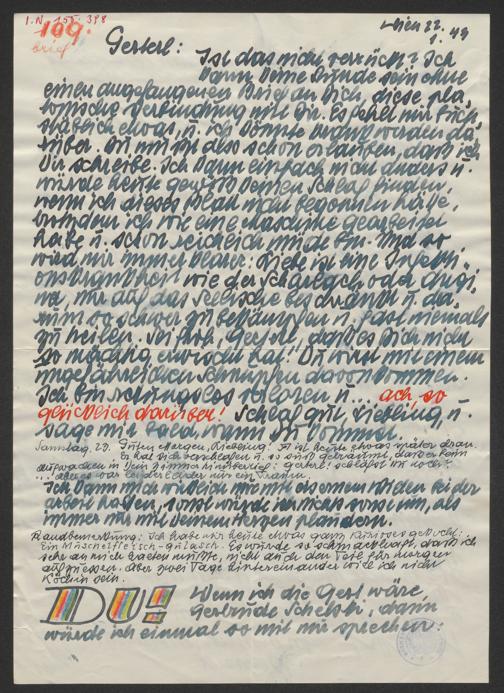 I.N. 155.398
109.
brief
Wien 22.
1. 49
Gerterl:
Ist das nicht verrückt? Ich
kann keine Stunde sein ohne
einen angefangenen Brief an Dich, diese pla-
tonische Verbindung mit Dir. Es fehlt mir buch-
stäblich etwas, u. ich könnte krank werden da-
rüber. Du musst also schon erlauben, dass ich
Dir schreibe. Ich kann einfach nicht anders u.
würde heute gewiss keinen Schlaf finden,
wenn ich dieses Blatt nicht begonnen hätte,
trotzdem ich wie eine Maschine gearbeitet
habe u. schon reichlich müde bin. Und so
wird mir immer klarer: Liebe ist eine Infekti-
onskrankheit wie der Scharlach oder Angi-
na, nur auf das Seelische beschränkt u. da-
rum so schwer zu bekämpfen u. fast niemals
zu heilen. Sei froh, Gerterl, dass es Dich nicht
so mächtig erwischt hat! Du wirst mit einem
ungefährlichen Schnupfen davonkommen.
Ich bin rettungslos verloren u... ach, so
glücklich darüber! Schlaf gut, Liebling, u.
sage mir bald wann Du kommst.
Samstag, 23. Guten Morgen, Liebling! Es ist heute etwas später dran.
Er hat sich verschlafen u. so süss geträumt, dass er beim
Aufwachen in Dein Zimmer hinüberrief: Gerterl! schläfst Du noch?
... aber es war leider nur ein Traum.
Ich kann mich wirklich nur mit eisernem Willen bei der
Arbeit halten, sonst würde ich nichts sonst tun, als
immer nur mit Deinem Herzen plaudern.
Randbemerkung: Ich habe mir heute etwas ganz Famoses gekocht:
Ein Muschelfleisch-Gulasch. Es wurde so schmackhaft, dass ich
sehr an mich halten musste, nicht auch den Rest für morgen
aufzuessen. Aber zwei Tage hintereinander will ich nicht
Köchin sein.
DU!
Wenn ich die Gert wäre,
Gertrude Schebst, dann
würde ich einmal so mit mir sprechen: